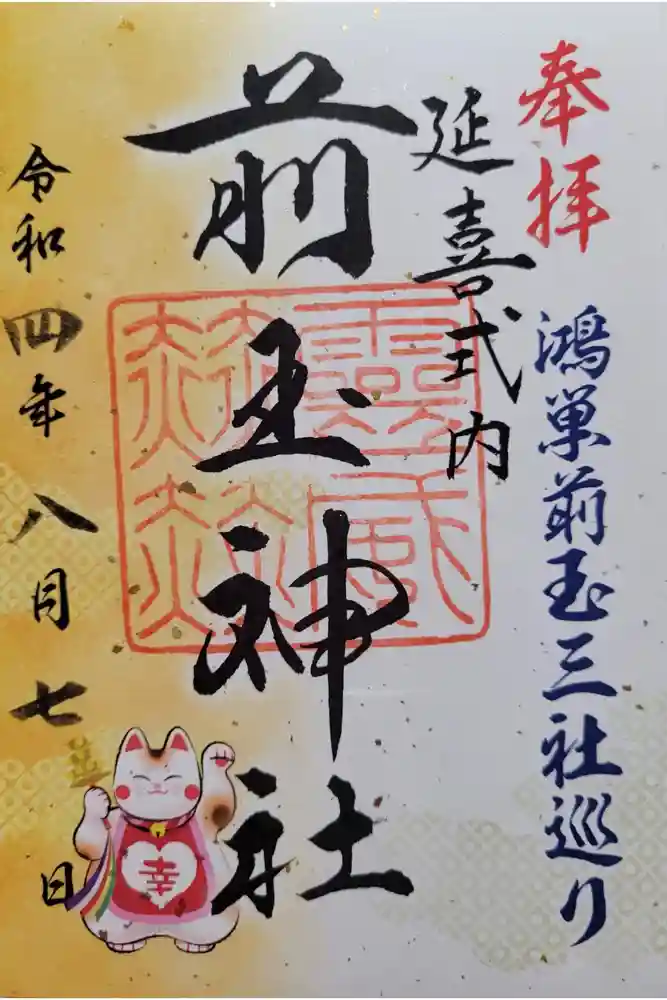 奉拝
鴻巣前玉三社巡り
延喜式内
前玉神社
霊威赫赫
令和四年八月七日
幸